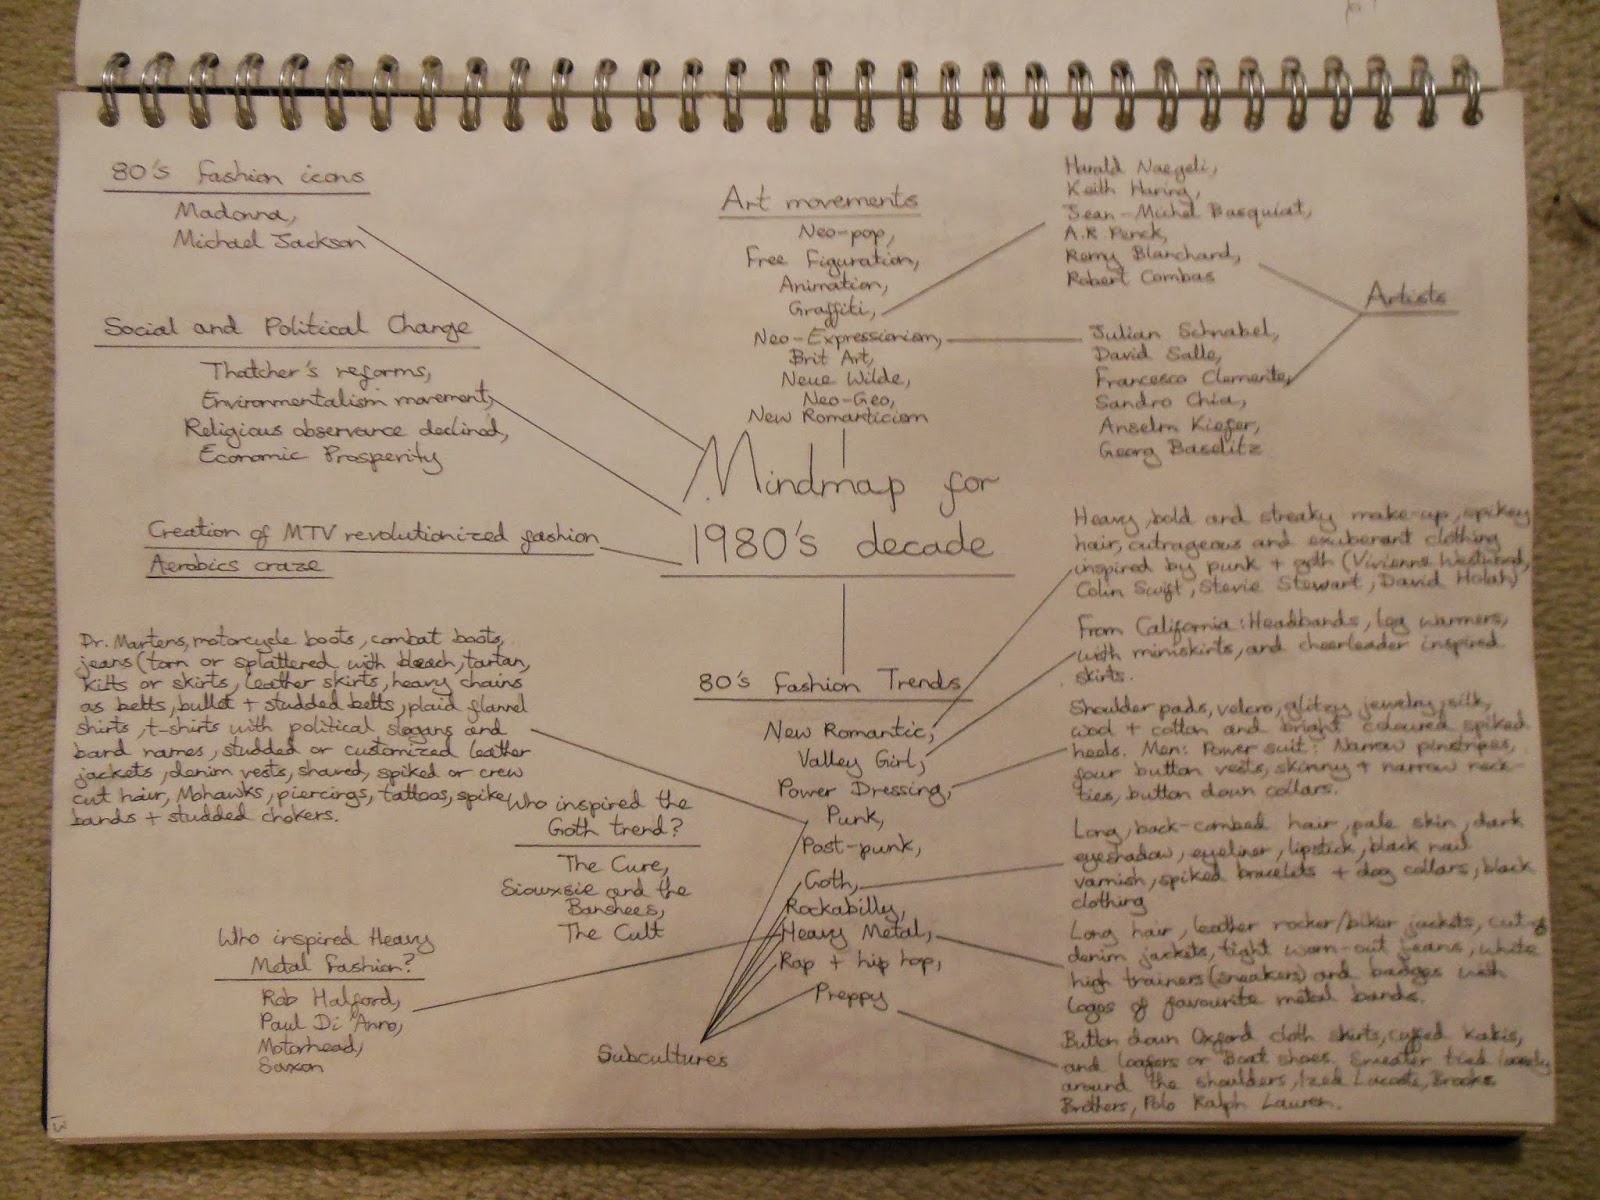 80's Fashion icons
Madonna,
Michael Jackson
Social and Political Change
Thatcher's reforms,
Environmentalism movement,
Religious observance declined,
Economic Prosperity
Creation of MTV revolutionized fashion
Aerobics craze
Art movements
Neo-pop,
Free Figuration,
Animation,
Graffiti,
Neo-Expressionism,
Brit Art,
Neue Wilde,
Neo-Geo,
New Romanticism
Harald Naegeli,
Keith Haring,
Jean-Michel Basquiat,
A.R Penck,
Remy Blanchard,
Robert Combas
Artists
Julian Schnabel,
David Salle,
Francesco Clemente,
Sandro Chia,
Anselm Kiefer,
Georg Baselitz
Mindmap for
1980's decade
80's Fashion Trends
New Romantic,
Valley Girl,
Power Dressing,
Punk,
Post-punk,
Goth,
Rockabilly,
Heavy Metal,
Rap + hip hop,
Preppy
Subcultures
Dr. Martens, motorcycle boots, combat boots,
jeans (torn or splattered with bleach, tartan,
kilts or skirts, leather skirts, heavy chains
as belts, bullet + studded belts, plaid flannel
shirts, t-shirts with political slogans and
band names, studded or customized leather
jackets, denim vests, shaved, spiked or crew
cut hair, Mohawks, piercings, tattoos, spike
bands + studded chokers.
Who inspired the
Goth trend?
The Cure,
Siouxsie and the
Banshees,
The Cult
Who inspired Heavy
Metal Fashion?
Rob Halford,
Paul Di'Anno,
Motorhead,
Saxon
Heavy, bold and streaky make-up, spikey
hair, outrageous and exuberant clothing
inspired by punk + goth (Vivienne Westwood,
Colin Swift, Stevie Stewart, David Holah)
From California: Headbands, leg warmers,
with miniskirts, and cheerleader inspired
skirts.
Shoulder pads, velcro, glitzy jewelry, silk,
wool + cotton and bright coloured spiked
heels. Men: Power suit: Narrow pinstripes,
four button vests, skinny + narrow neck-
ties, button down collars.
Long, back-combed hair, pale skin, dark
eyeshadow, eyeliner, lipstick, black nail
varnish, spiked bracelets + dog collars, black
clothing
Long hair, leather rocker/biker jackets, cut-off
denim jackets, tight worn-out jeans, white
high trainers (sneakers) and badges with
logos of favourite metal bands.
Button down Oxford cloth shirts, cuffed kakis,
and loafers or Boat shoes. Sweater tied loosely
around the shoulders, Izod Lacoste, Brooks
Brothers, Polo Ralph Lauren.